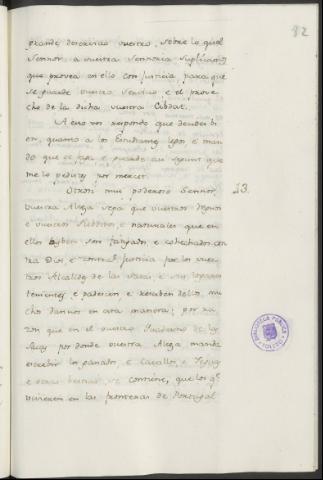 82
grande deservicio vuestro, sobre lo qual
Sennor, a vuestra Sennoria suplicamos
que provea en ello con justicia para que
se guarde vuestro servicio, e el prove-
cho de la dicha vuestra Cibdat.
A esto vos respondo que decides bi-
en, quanto a los
do que se faga, e guarde segunt que
me lo pedistes por merced.
Otrosi muy poderoso Sennor, 13.
vuestra Alteza sepa que vuestros Regnos
e vuestros Subditos, e naturales que en
ellos biben son fatigados e cohechados con-
tra Dios, e contra justicia por los vues-
tros Alcaldes de las Sacas e sus logares
tenientes, e padescen, e resciben dellos mu-
chos dannos en esta manera; por ra-
zon que en el vuestro Quaderno de las
Sacas por donde vuestra Alteza manda
escrebir los ganados, e Cavallos, e Yeguas
e otras bestias se contiene, que los que
vivieren en las fronteras de Portugal
BIBLIOTECA PUBLICA
TOLEDO